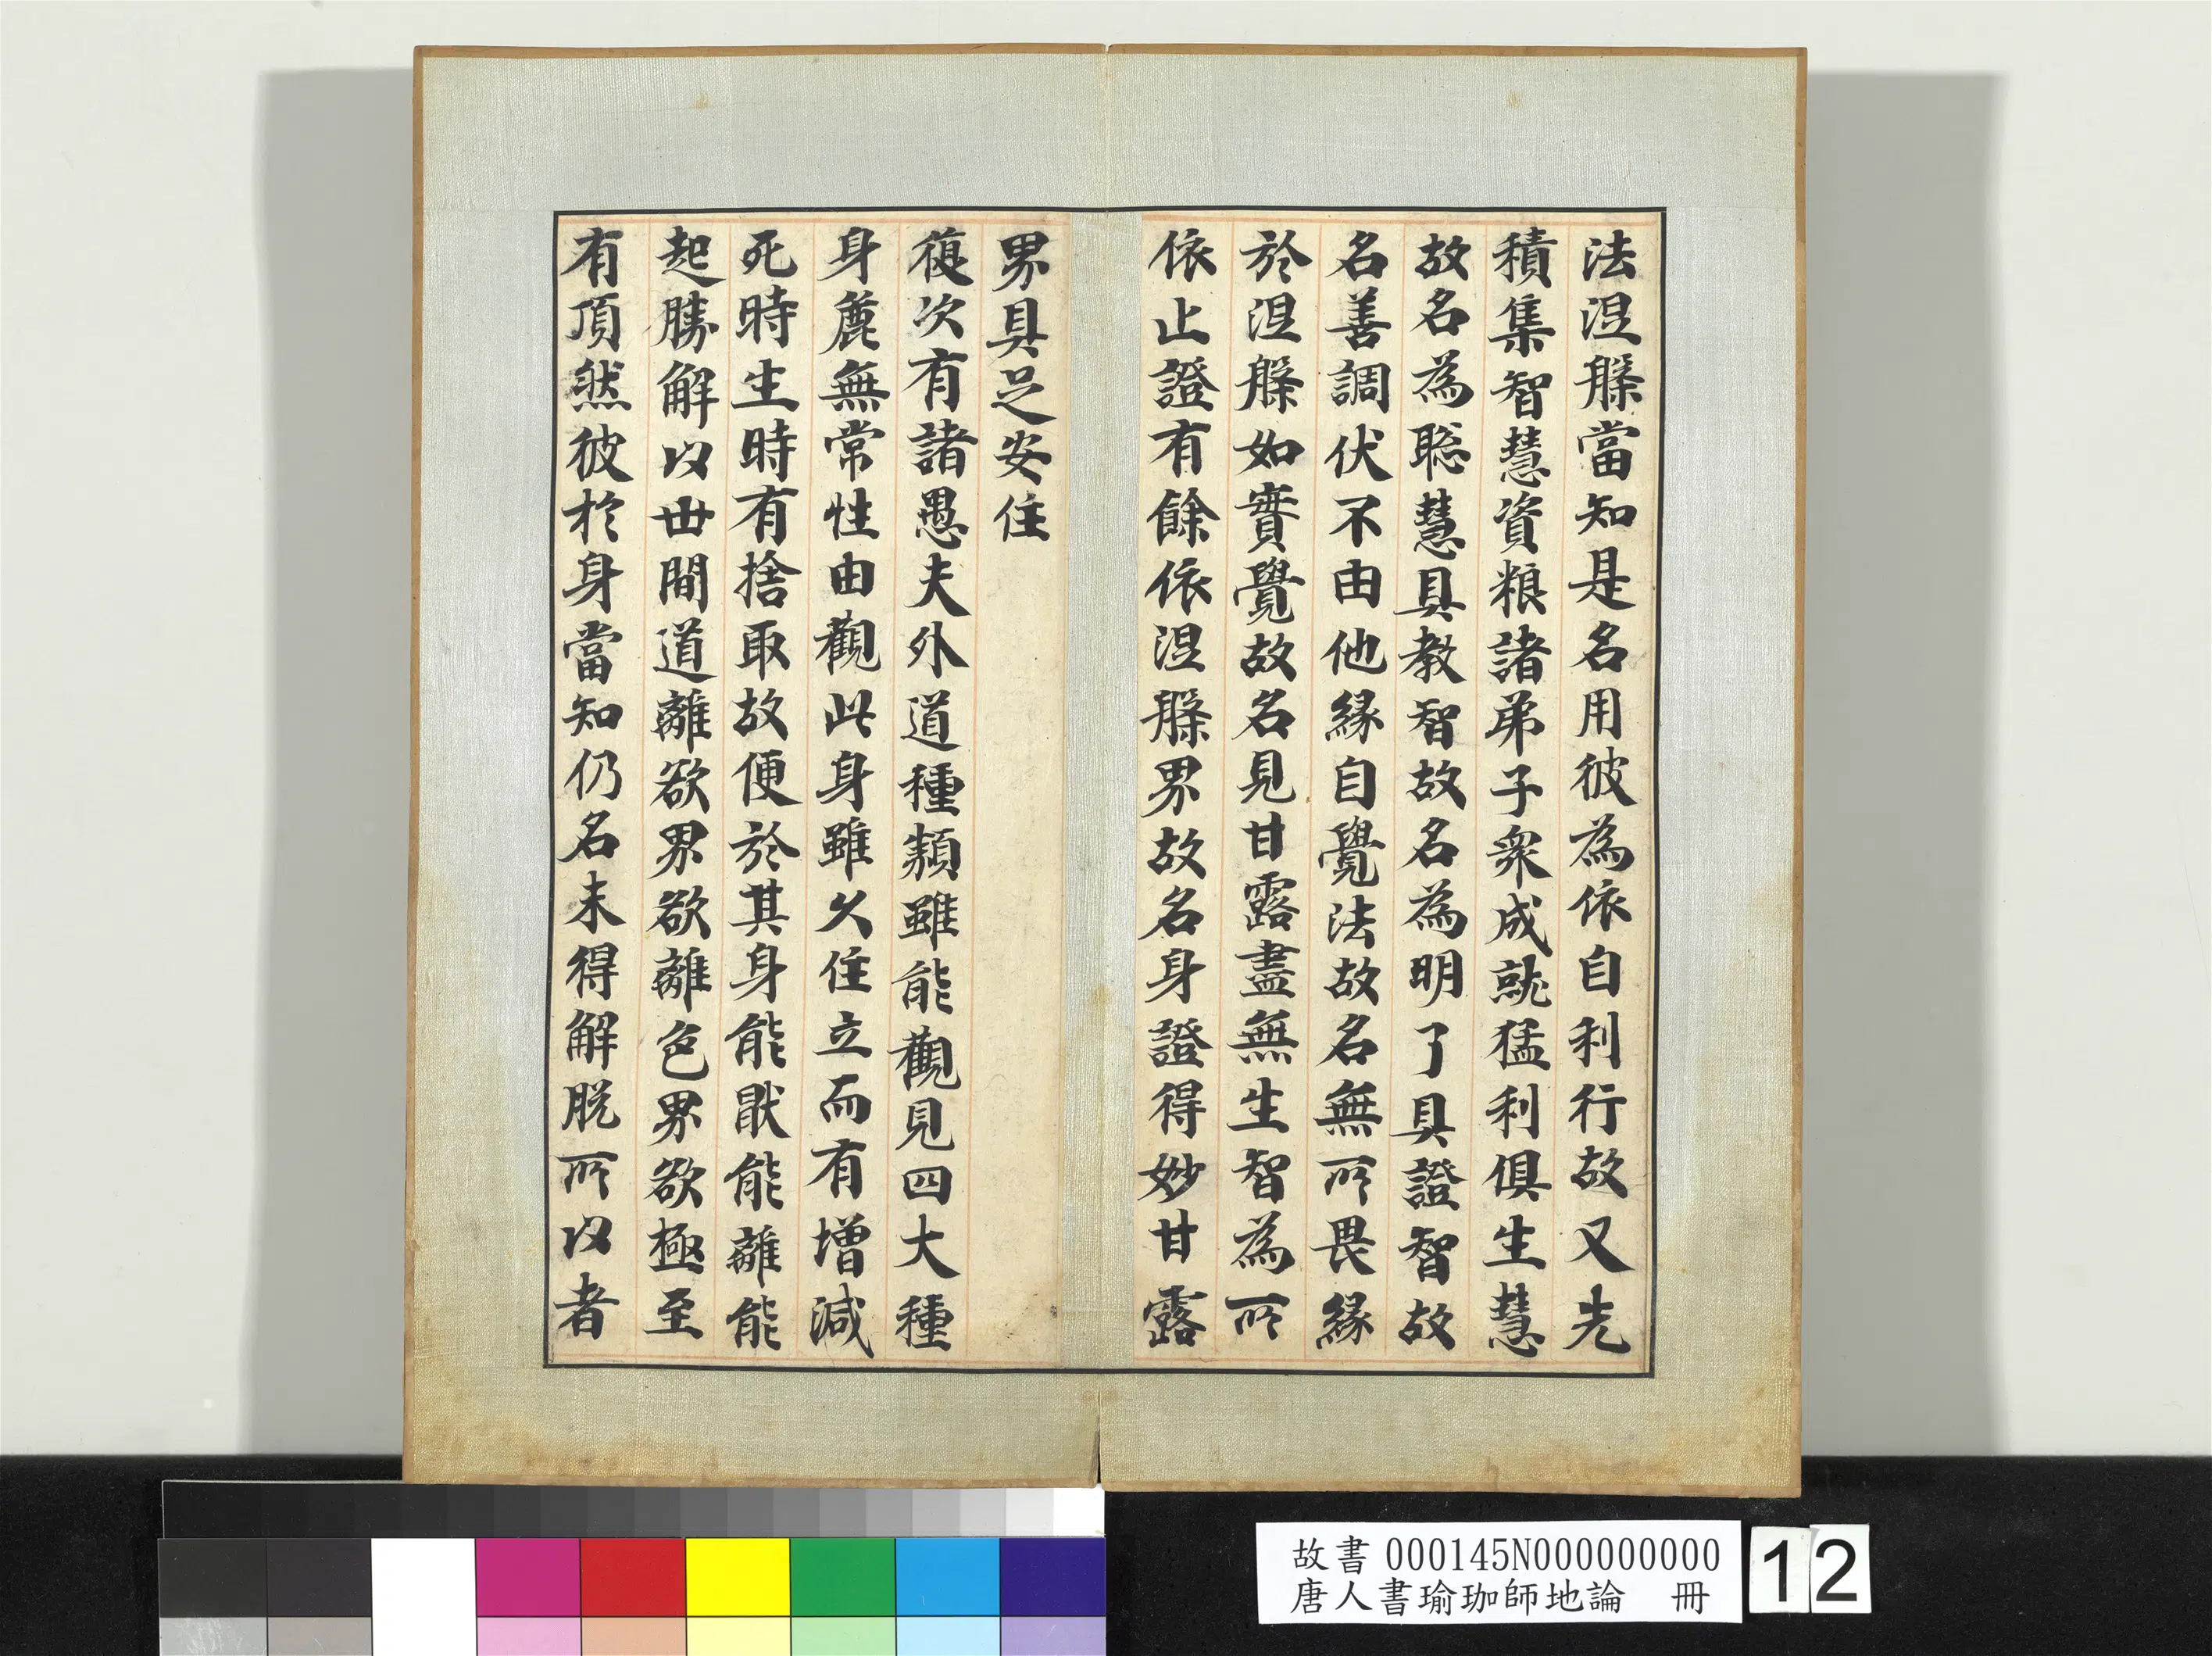 法涅槃當知是名用彼為依自利行故又先
積集智慧資粮諸弟子衆成就猛利俱生慧
故名為聡慧具教智故名為明了具證智故
名善調伏不由他緣自覺法故名無所畏緣
於涅槃如實覺故名見甘露盡無生智為所
依止證有餘依涅槃界故名身證得妙甘露
界具足安住
復次有諸愚夫外道種類雖能觀見四大種
身麁無常性由觀此身雖久住立而有增減
死時生時有捨取故便於其身能猒能離能
起勝解以世間道離欲界欲離色界欲極至
有頂然彼於身當知仍名未得解脱所以者
故書 000145N000000000
唐人書瑜珈師地論 冊
12